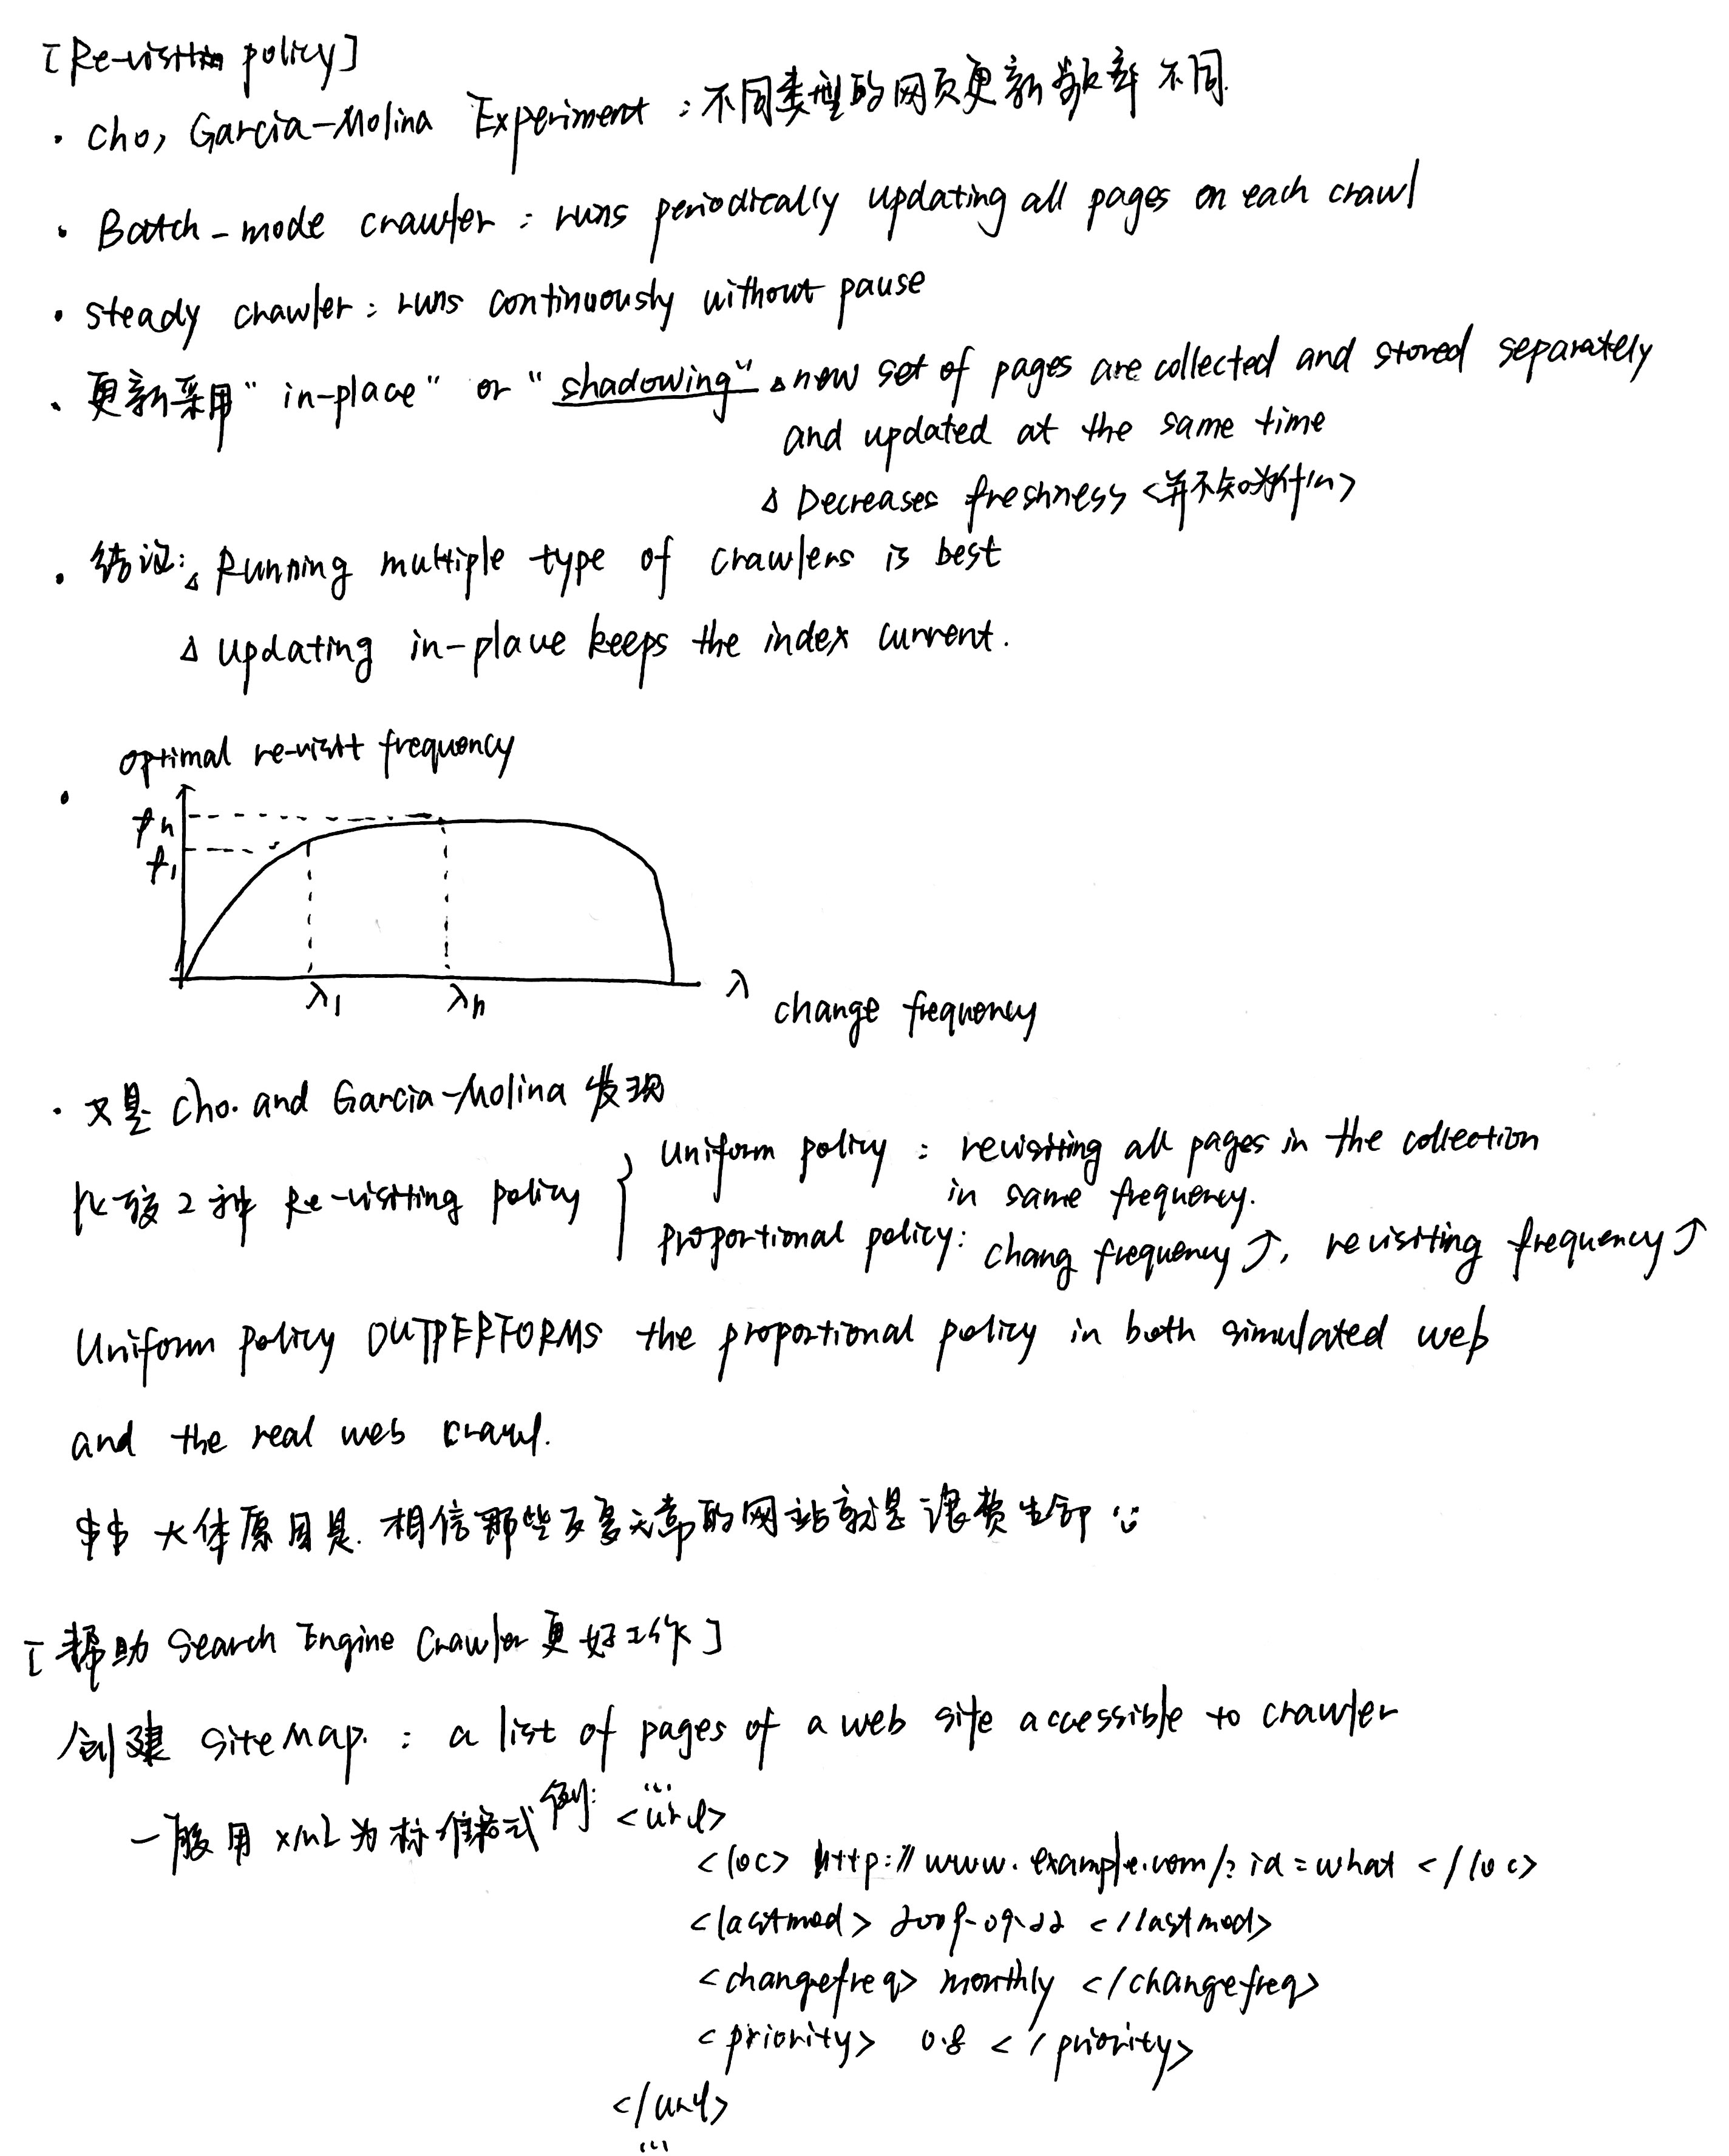 [Re-visitin policy]
· Cho, Garcia-Molina Experiment : 不同类型的网页更新频率不同.
· Batch-mode crawler : runs periodically updating all pages on each crawl
· steady crawler : runs continuously without pause
· 更新采用 "in-place" or "shadowing" △ new set of pages are collected and stored separately
and updated at the same time
△ Decreases freshness <并不知为什么>
· 结论: △ Running multiple type of crawlers is best
△ updating in-place keeps the index current.
optimal re-visit frequency
·
fn
f1
λ1 λn λ change frequency
· 又是 Cho. and Garcia-Molina 发现
比较 2 种 Re-visiting policy { uniform policy : revisiting all pages in the collection
in same frequency.
proportional policy: chang frequency ↑, revisiting frequency ↑
Uniform policy OUTPERFORMS the proportional policy in both simulated web
and the real web crawl.
$$ 大体原因是. 相信那些反复无常的网站就是浪费生命
[帮助 Search Engine Crawler 更好工作]
创建 site map. : a list of pages of a web site accessible to crawler
一般用 XML 为标准格式 例: ...
<url>
<loc> http://www.example.com/?id=what </loc>
<lastmod> 2009-09-22 </lastmod>
<changefreq> monthly </changefreq>
<priority> 0.8 </priority>
</url>
...